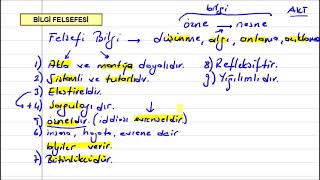 BİLGİ FELSEFESİ
bilgi
AKT
özne → nesne
Felsefi Bilgi → düşünme, algı, anlama, açıklama
1) Akla ve mantığa dayalıdır.
2) Sistemli ve tutarlıdır.
3) Eleştireldir.
4) Sorgulayıcıdır.
5) özneldir. (iddiası evrenseldir)
6) insana, hayata, evrene dair
bilgiler verir.
7) Bütünlükcüdür.
8) Refleksiftir.
9) Yığılımlıdır.